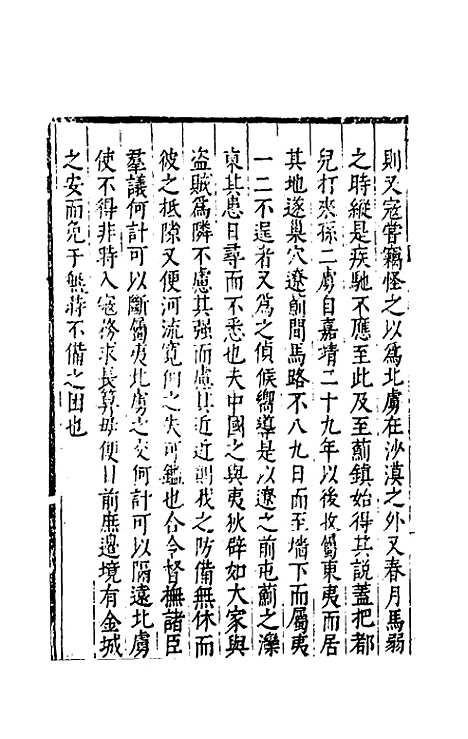 則又寇嘗竊怪之以爲北虜在沙漠之外又春月馬弱
之時縱是疾馳不應至此及至薊鎮始得其說蓋把都
兒打來孫二虜自嘉靖二十九年以後收屬東夷而居
其地遂巢穴遼薊間馬路不八九日而至墻下而屬夷
一二不逞者又爲之偵候嚮導是以遼之前屯薊之灤
東其患日尋而不悉也夫中國之與夷狄辟如大家與
盜賊爲隣不慮其强而慮其近近則我之防備無休而
彼之抵隙又便河流寬佃之失可鑑也合令督撫諸臣
羣議何計可以斷屬夷北虜之交何計可以隔遠北虜
使不得非時入寇務求長算毋便目前庶邊境有金城
之安而免于無時不備之困也